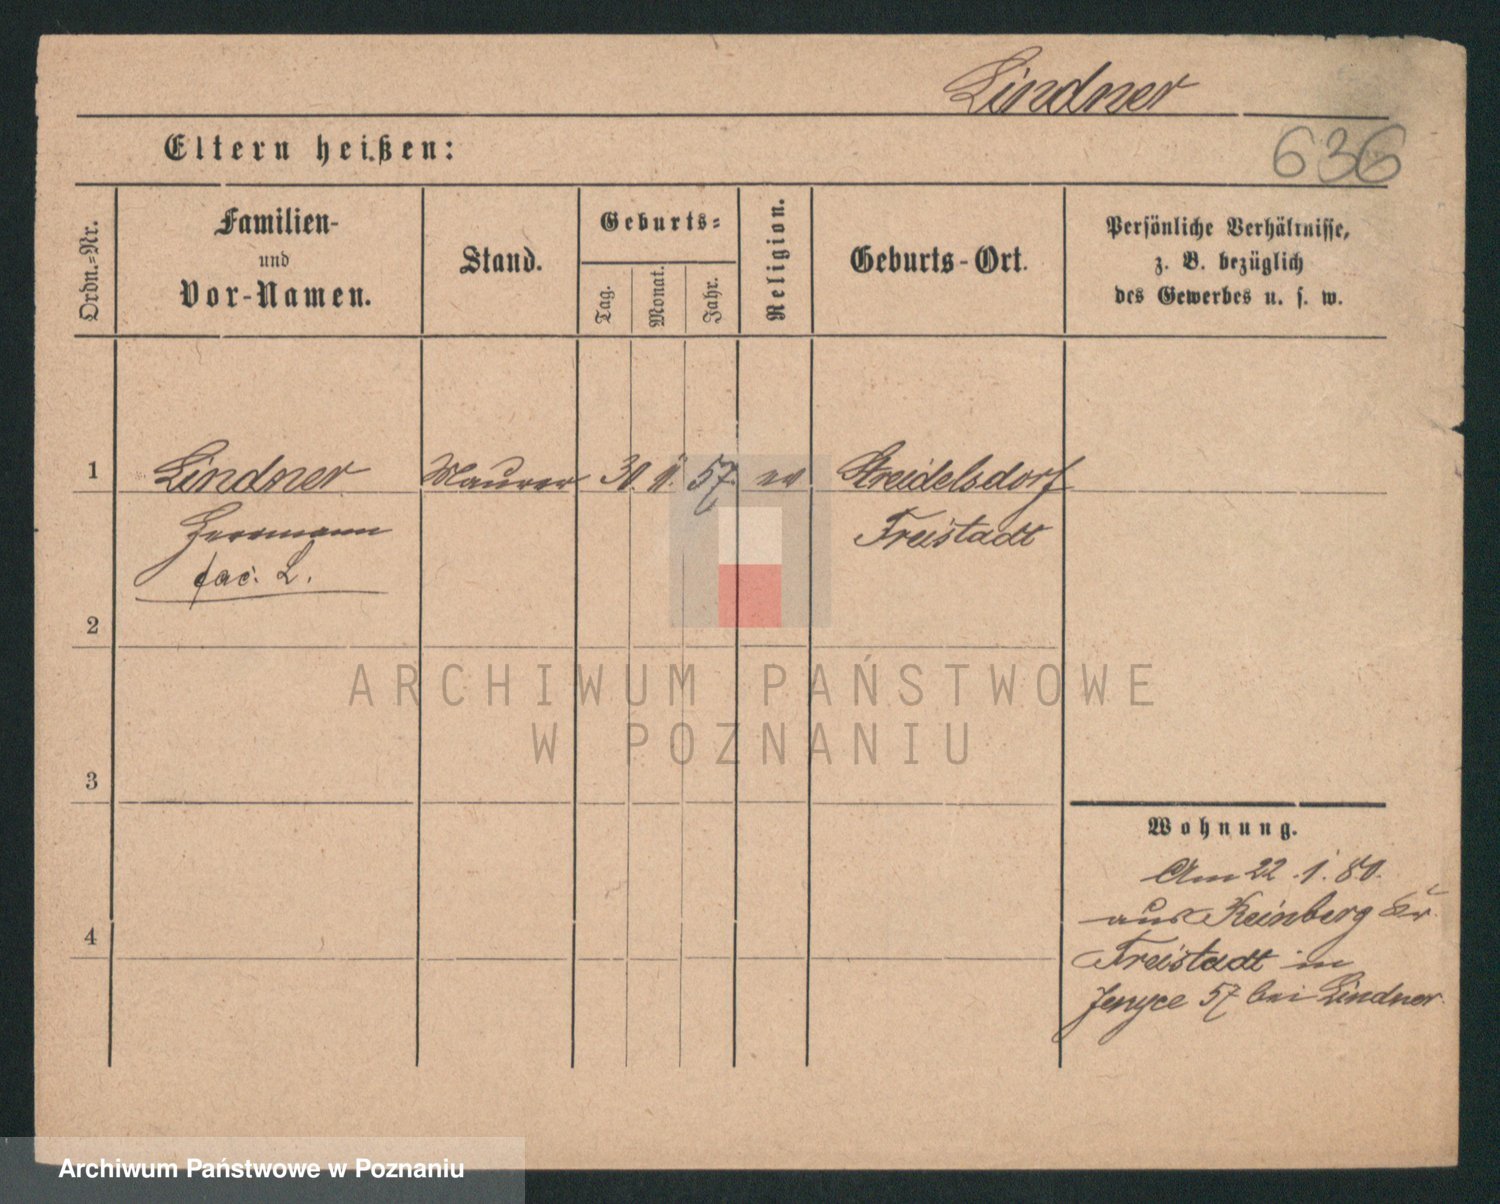 Lindner
Eltern heißen:
636
Ordn.-Nr.
Familien-
und
Vor-Namen.
Stand.
Geburts-
Tag.
Monat.
Jahr.
Religion.
Geburts-Ort.
Persönliche Verhältnisse,
z. B. bezüglich
des Gewerbes u. s. w.
1 Lindner Maurer 30. 57. ev Streidelsdorf
Herrmann Freistadt
fac. L.
2
3
4
Wohnung.
Am 22. 1. 80.
aus Reinberg Kr.
Freistadt in
57 bei Lindner.
ARCHIWUM PAŃSTWOWE
W POZNANIU
Archiwum Państwowe w Poznaniu